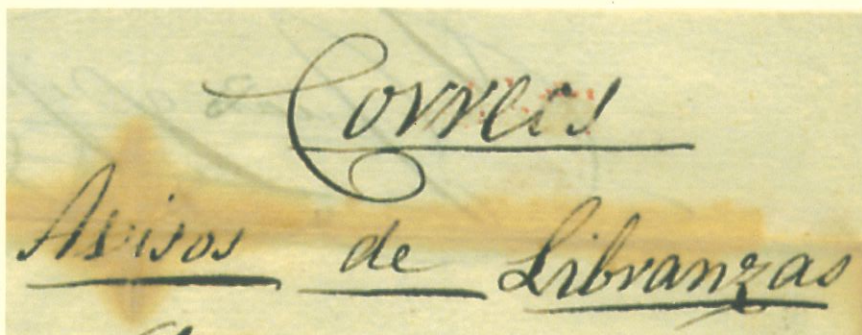 Correos
Avisos de Libranzas